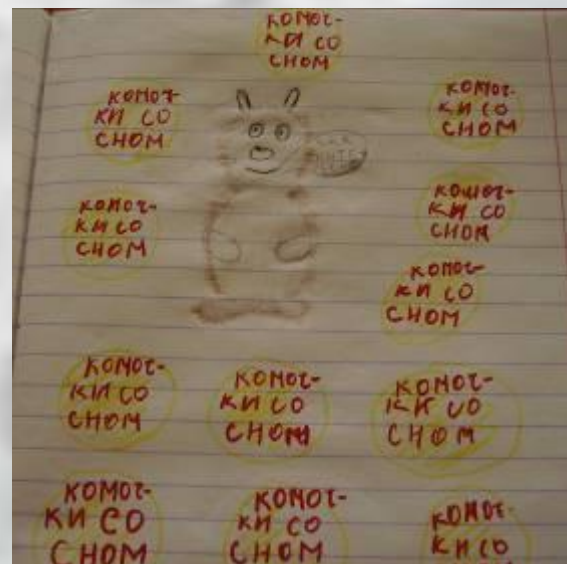 КОМОЧ-
КИ СО
СНОМ
КОМОЧ-
КИ СО
СНОМ
КОМОЧ-
КИ СО
СНОМ
КОМОЧ-
КИ СО
СНОМ
КОМОЧ-
КИ СО
СНОМ
КОМОЧ-
КИ СО
СНОМ
КОМОЧ-
КИ СО
СНОМ
КОМОЧ-
КИ СО
СНОМ
КОМОЧ-
КИ СО
СНОМ
КОМОЧ-
КИ СО
СНОМ
КОМОЧ-
КИ СО
СНОМ
КОМОЧ-
КИ СО